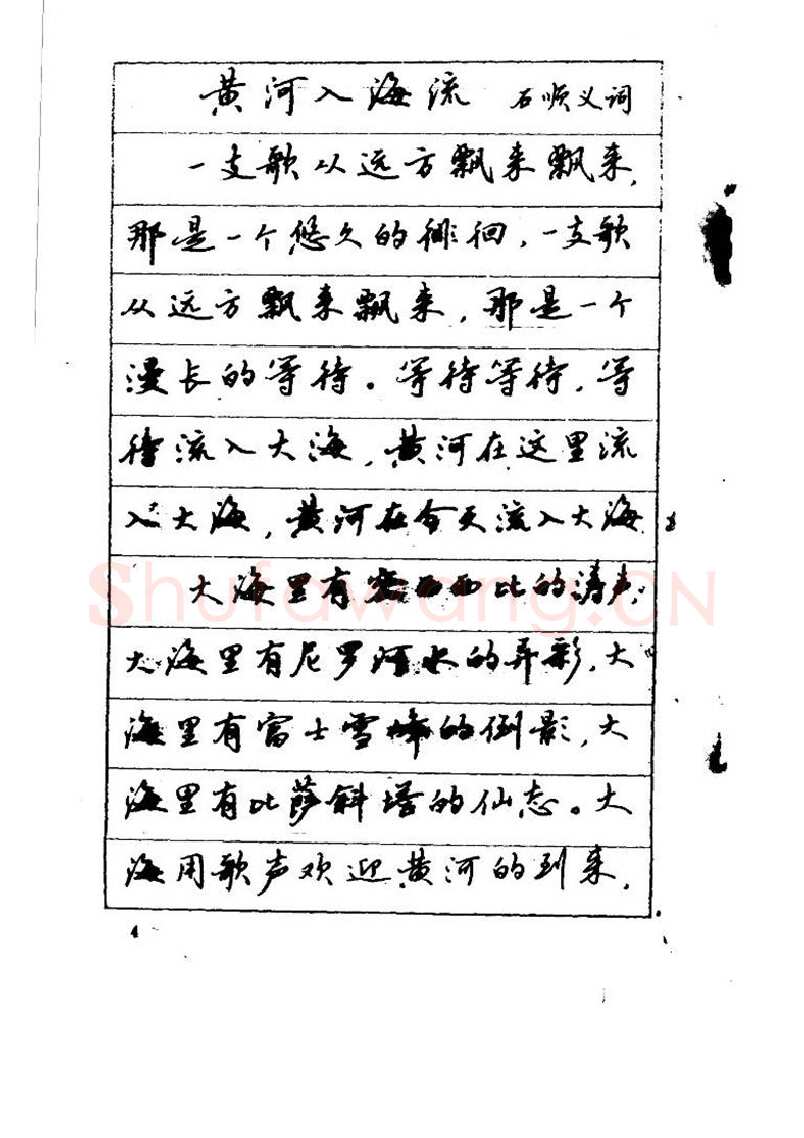 黄河入海流 石顺义词
一支歌从远方飘来飘来，
那是一个悠久的徘徊，一支歌
从远方飘来飘来，那是一个
漫长的等待。等待等待，等
待流入大海，黄河在这里流
入大海，黄河在今天流入大海
大海里有密西西比的涛声，
大海里有尼罗河水的异彩，大
海里有富士雪峰的倒影，大
海里有比萨斜塔的仙态。大
海用歌声欢迎黄河的到来，
4
Shufawang.CN